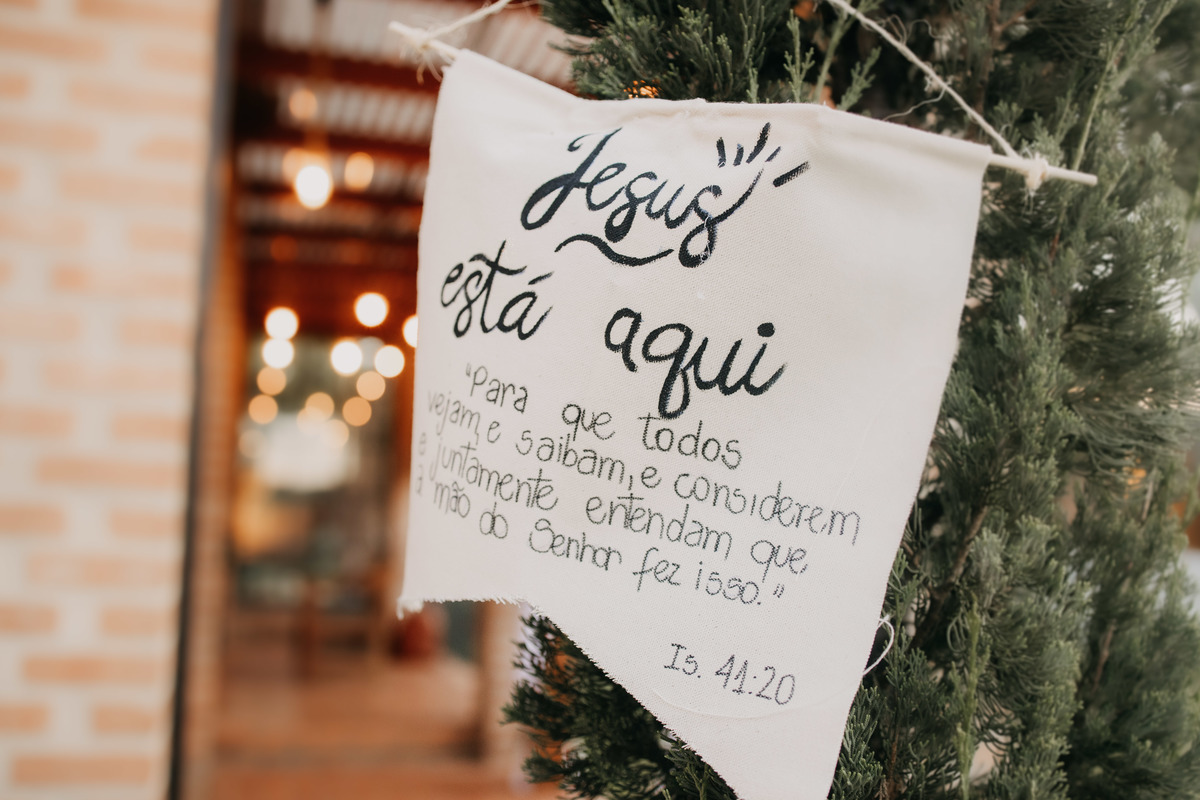 Jesus
está aqui
"Para que todos
vejam, e saibam, e considerem
e juntamente entendam que
a mão do Senhor fez isso."
Is. 41:20